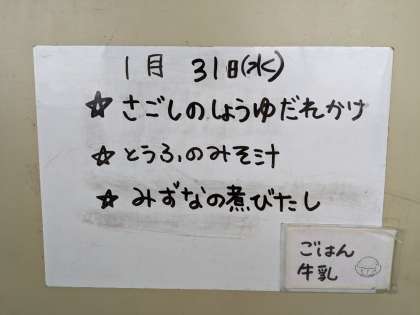 1月 31日(水)
☆ さごしのしょうゆだれかけ
☆ とうふのみそ汁
☆ みずなの煮びたし
ごはん
牛乳